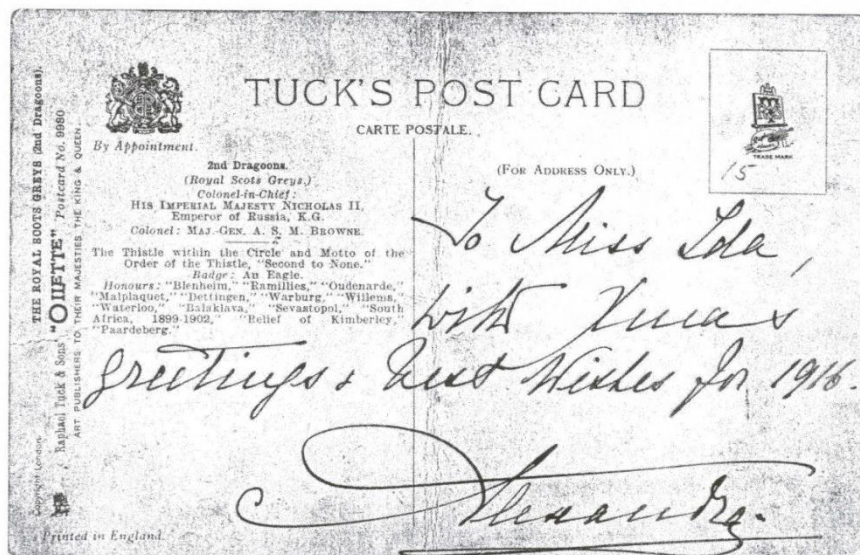 THE ROYAL SCOTS GREYS (2nd Dragoons).
Raphael Tuck & Sons' "OILETTE" Postcard No. 9980
ART PUBLISHERS TO THEIR MAJESTIES THE KING & QUEEN.
Copyright London.
By Appointment.
TUCK'S POST CARD
CARTE POSTALE.
TRADE MARK
15
2nd Dragoons.
(Royal Scots Greys.)
Colonel-in-Chief:
HIS IMPERIAL MAJESTY NICHOLAS II,
Emperor of Russia, K.G.
Colonel: MAJ.-GEN. A. S. M. BROWNE.
The Thistle within the Circle and Motto of the
Order of the Thistle, "Second to None."
Badge: An Eagle.
Honours: "Blenheim," "Ramillies," "Oudenarde,"
"Malplaquet," "Dettingen," "Warburg," "Willems,"
"Waterloo," "Balaklava," "Sevastopol," "South
Africa, 1899-1902," "Relief of Kimberley,"
"Paardeberg."
(FOR ADDRESS ONLY.)
To Miss Ida,
with Xmas
greetings & best Wishes for 1916.
Alexandra.
Printed in England.